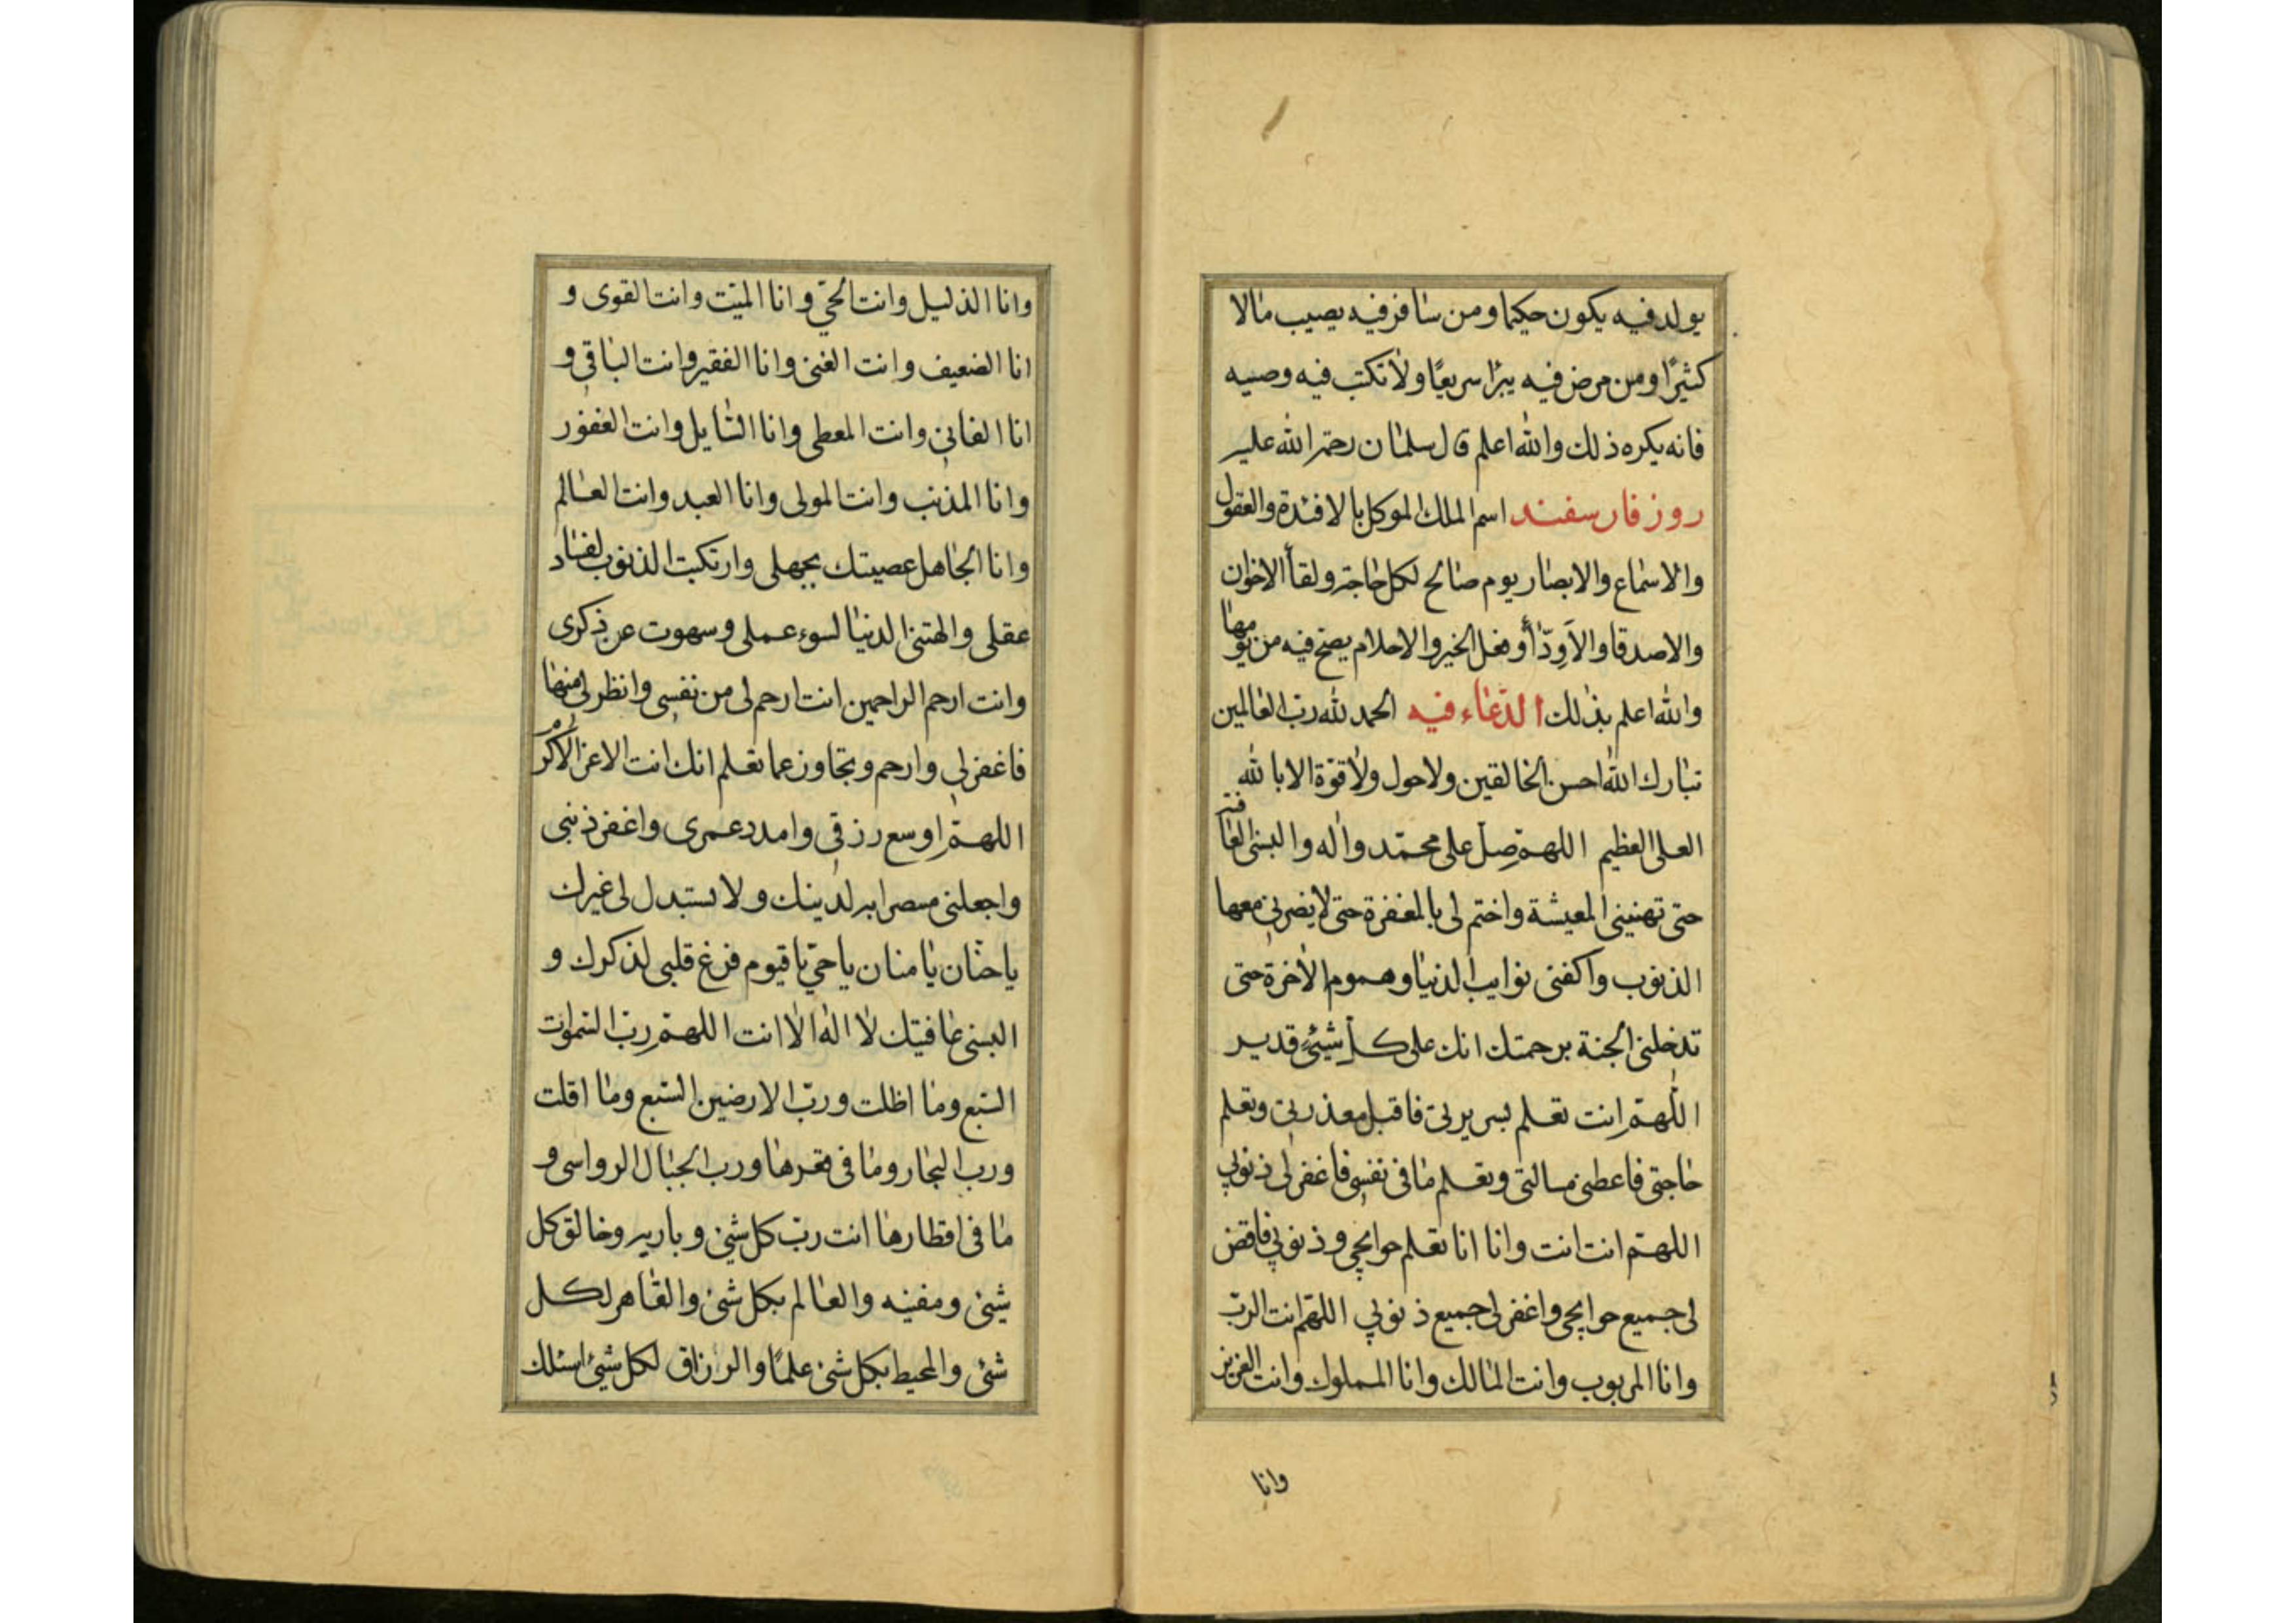 يولد فيه يكون حكيما ومن سافر فيه يصيب مالا
كثيرًا ومن مرض فيه يبرا سريعًا ولا تكتب فيه وصيه
فانه يكره ذلك والله اعلم قال سلمان رحمة الله عليه
روز فارسفند اسم الملك الموكل بالافئدة والعقول
والاسماع والابصار يوم صالح لكل حاجة ولقاأ الاخوان
والاصدقا والاَوِدّاأ وفعل الخير والاحلام يصح فيه من يومها
والله اعلم بذلك الدّعاء فيه الحمد لله ربّ العالمين
تبارك الله احسن الخالقين ولا حول ولا قوّة الا بالله
العلى العظيم اللهمّ صلّ على محمّد واله والبسنى العافية
حتى تهنينى المعيشة واختم لى بالمغفرة حتى لا يضرنى معها
الذنوب واكفنى نوايب الدنيا وهموم الاخرة حتى
تدخلنى الجنة برحمتك انك على كلّ شيئٍ قدير
اللّهمّ انت تعلم سريرتى فاقبل معذرتى وتعلم
حاجتى فاعطنى مسالتى وتعلم ما فى نفسى فاغفر لى ذنوبي
اللهمّ انت انت وانا انا تعلم حوايجي وذنوبي فاقض
لى جميع حوايجى واغفر لى جميع ذنوبي اللهّم انت الربّ
وانا المربوب وانت المالك وانا المملوك وانت العزيز
وانا
وانا الذليل وانت الحيّ وانا الميّت وانت القوى و
انا الضعيف وانت الغنى وانا الفقير وانت الباقي و
انا الفانى وانت المعطى وانا السّايل وانت الغفور
وانا المذنب وانت المولى وانا العبد وانت العالم
وانا الجاهل عصيتك بجهلى وارتكبت الذنوب لفساد
عقلى والهتنى الدنيا لسوء عملى وسهوت عن ذكرى
وانت ارحم الراحمين انت ارحم لى من نفسى وانظر لى منها
فاغفر لى وارحم وتجاوز عما تعلم انك انت الاعز الاكرم
اللهمّ اوسع رزقي وامدد عمرى واغفر ذنبى
واجعلنى لدينك ولا تستبدل لى غيرك
يا حنّان يا منان يا حيّ يا قيوم فرّغ قلبى لذكرك و
البسنى عافيتك لا اله الا انت اللهمّ ربّ السّموات
السّبع وما اظلت وربّ الارضين السّبع وما اقلت
ورب البحار وما فى قعرها ورب الجبال الرواسى و
ما فى اقطارها انت ربّ كل شئ وباريه وخالق كل
شيئ ومفنيه والعالم بكل شئ والقاهر لكل
شئ والمحيط بكل شئ علمًا والرازاق لكل شيئ اسئلك